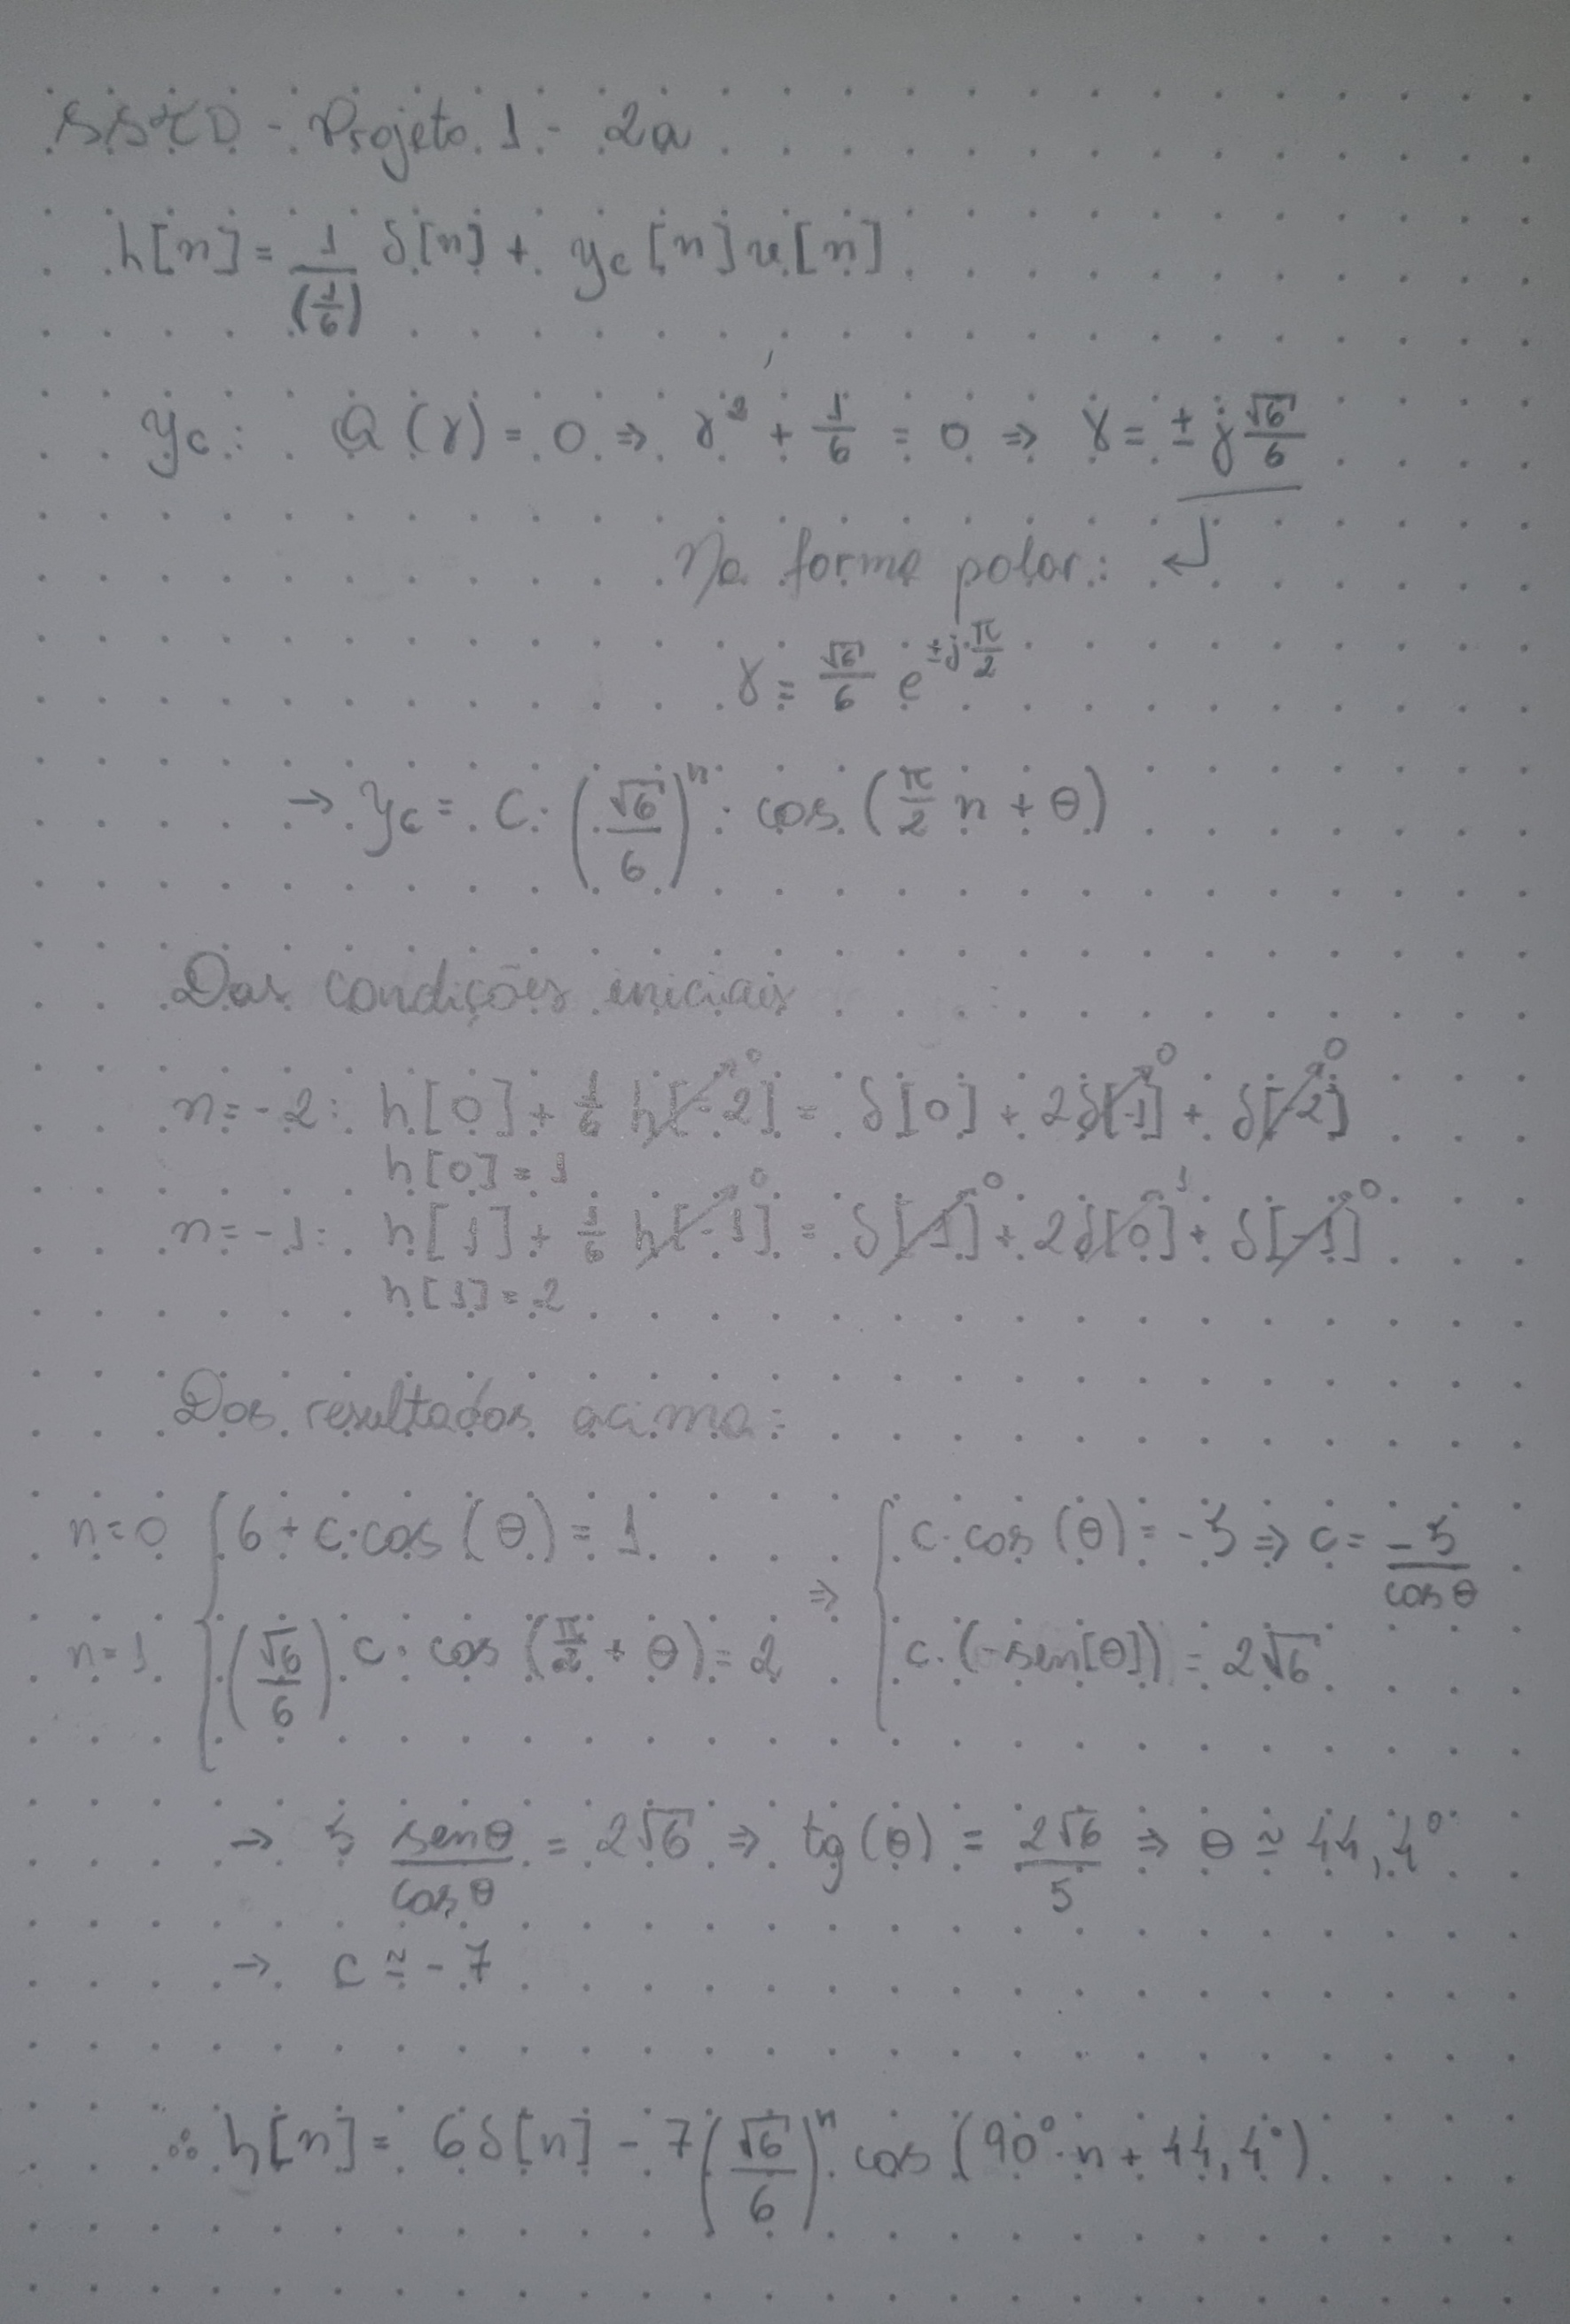 SSTD - Projeto 1 - 2a
h[n] = 1/(1/6) δ[n] + yc[n]u[n]
yc: Q(γ) = 0 ⇒ γ² + 1/6 = 0 ⇒ γ = ± j √6/6
Na forma polar: ↲
γ = √6/6 e^(±j·π/2)
→ yc = C · (√6/6)^n · cos(π/2 n + θ)
Das condições iniciais
n = -2: h[0] + 1/6 h[-2]→0 = δ[0] + 2δ[-1]→0 + δ[-2]→0
h[0] = 1
n = -1: h[1] + 1/6 h[-1]→0 = δ[1]→0 + 2δ[0]→1 + δ[-1]→0
h[1] = 2
Dos resultados acima:
n=0 { 6 + c·cos(θ) = 1 ⇒ { c·cos(θ) = -5 ⇒ c = -5/cosθ
n=1 { (√6/6) c · cos(π/2 + θ) = 2 { c·(-sen[θ]) = 2√6
→ 5 senθ/cosθ = 2√6 ⇒ tg(θ) = 2√6/5 ⇒ θ ≃ 44,4°
→ c ≅ -7
∴ h[n] = 6δ[n] - 7(√6/6)^n cos(90°·n + 44,4°)